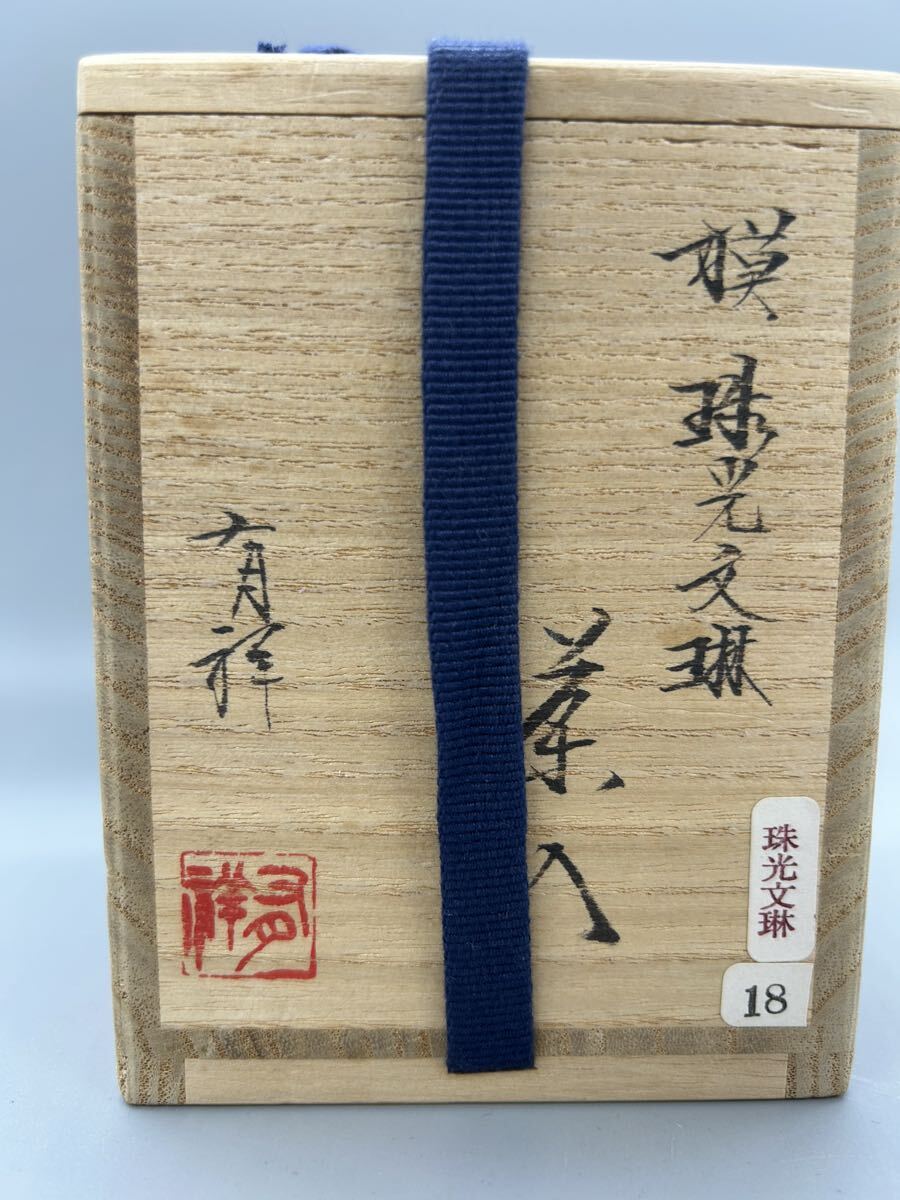 模 珠光文琳
茶入
有祥
有祥
珠光文琳
18